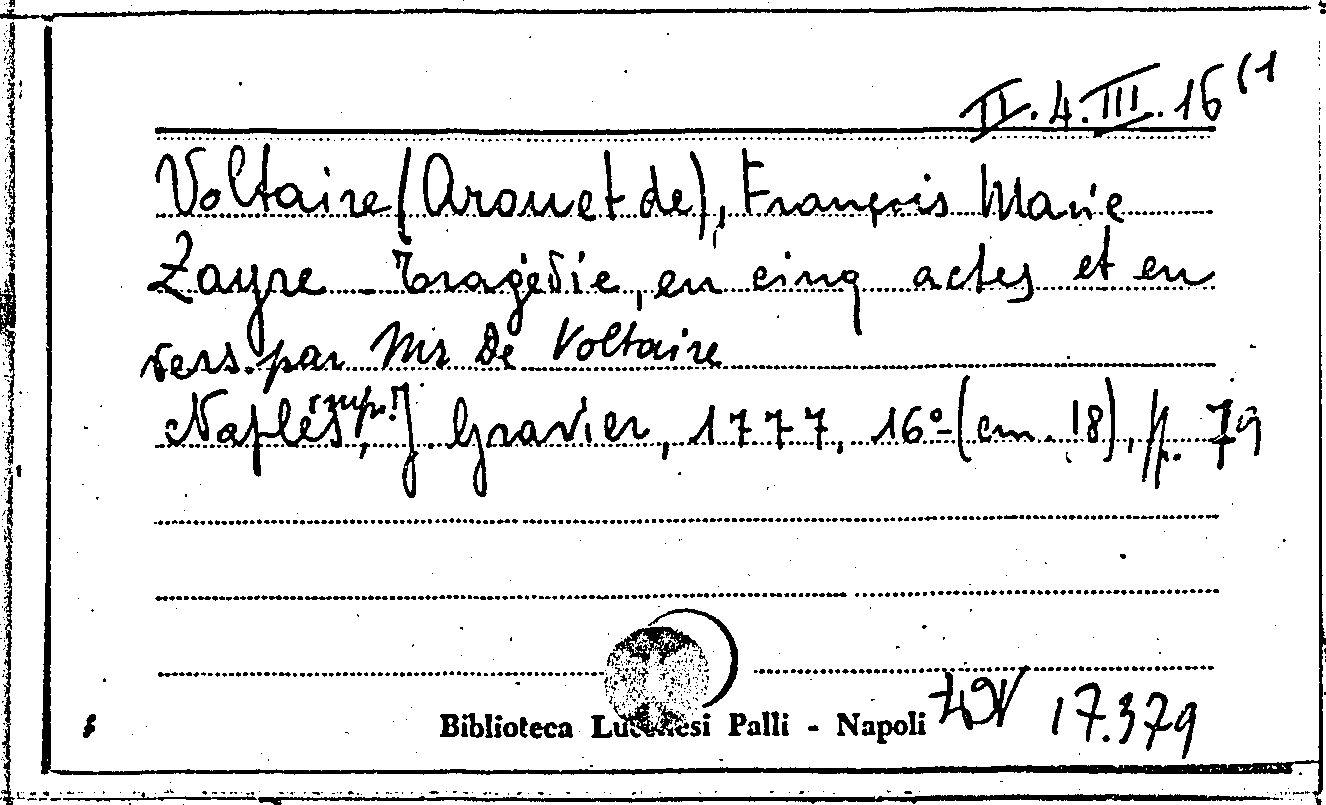 II.4.III.16(1
Voltaire (Arouet de), François Marie
Zayre - Tragédie, en cinq actes et en
vers par Mr de Voltaire
Naples, J. Gravier, 1777, 16º (cm. 18), p. 79
Biblioteca Lucchesi Palli - Napoli
17.379